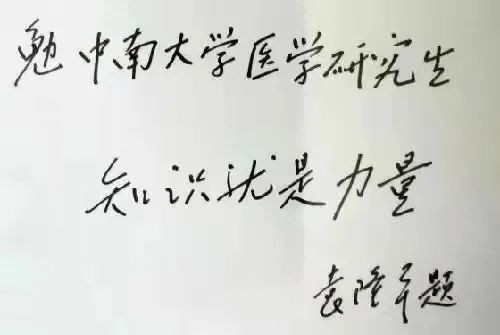 勉中南大学医学研究生
知识就是力量
袁隆平题